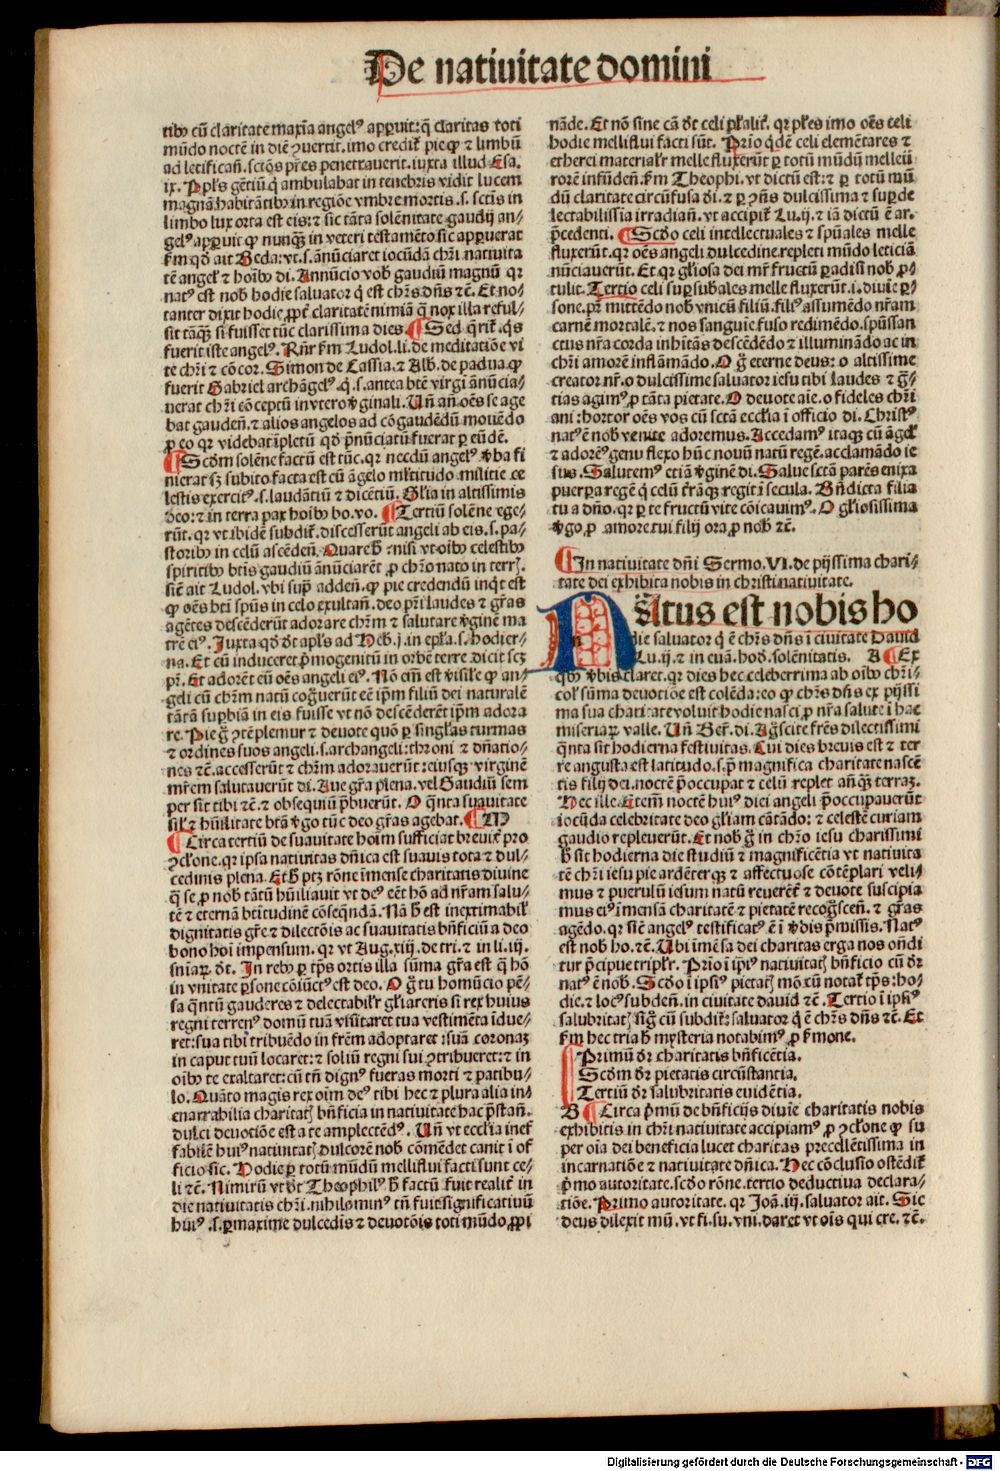 De natiuitate domini
tibꝰ cū claritate maxīa angelꝰ apparuit: q̄ claritas toti
mūdo noctē in diē ꝯuertit. imo credit᷑ pie ꝙ ⁊ limbū
ad letificań. sctōs pr̄es penetrauerit. iuxta illud Esa.
ix. Ppl̄s gētiū q̄ ambulabat in tenebris vidit lucem
magnā habitātibꝰ in regiōe vmbre mortis .s. sctīs in
limbo lux orta est eis: ⁊ sic tāta solēnitate gaudij an⸗
gelꝰ apparuit ꝙ nunqꝫ in veteri testamēto sic apparuerat
ẜm qđ ait Beda: vt .s. ānūciaret iocūdā chr̄i natiuita
tē angelꝰ ⁊ hoībꝰ di. Annūcio vob̄ gaudiū magnū qꝛ
natꝰ est nob̄ hodie saluator q̇ est chr̄s dn̄s ⁊c̄. Et no⸗
tanter dixit hodie, ꝓpt̄ claritatē nimiā q̄ nox illa reful⸗
sit tāqꝫ si fuisset tūc clarissima dies. ¶ Sed q̄rit᷑. q̇s
fuerit iste angelꝰ. Rn̄r ẜm Ludol. li. de meditatiōe vi
te chr̄i ⁊ cōcor. Simon de Cassia, ⁊ Alb. de padua ꝙ
fuerit Gabriel archāgelꝰ. q̇ .s. antea btē virgi ānūcia⸗
uerat chr̄i cōceptū in vtero v̄ginali. Vn̄ an̄ oēs se age
bat gauden̄. ⁊ alios angelos ad cōgaudēdū mouēdo
ꝓ eo qꝛ videbat īpletū qđ p̄nūciatū fuerat ꝑ eūdē.
¶ Scđm solēne factū est tūc. qꝛ necdū angelꝰ v̄ba fi
nierat sꝫ subito facta est cū āgelo ml̄titudo militie ce
lestis exercitꝰ .s. laudātiū ⁊ dicētiū. Gl̄ia in altissimis
deo: ⁊ in terra pax hoībꝰ bo. vo. ¶ Tertiū solēne ege⸗
rūt. qꝛ vt ibidē subdit᷑. discesserūt angeli ab eis .s. pa⸗
storibꝰ in celū ascēden̄. Quare h̄ ⁊ nisi vt oībꝰ celestibꝰ
spiritibꝰ btīs gaudiū ānūciarēt ꝓ chr̄o nato in terr̄.
sic̄ ait Ludol. vbi supͣ adden̄. ꝙ pie credendū inqͥt est
ꝙ oēs btī spūs in celo exultan̄. deo pr̄i laudes ⁊ gr̄as
agētes descēderūt adorare chr̄m ⁊ salutare v̄ginē ma
trē eiꝰ. Juxta qđ dt̄ apl̄s ad Heb. j. in epl̄a .s. hodier⸗
na. Et cū induceret p̄mogenitū in orbē terre dicit scꝫ
pr̄. Et adorēt eū oēs angeli eiꝰ. Nō em̄ est visile ꝙ an⸗
geli cū chr̄m natū cog̃uerūt eē ip̄m filiū dei naturalē
tātā supbiā in eis fuisse vt nō descēderēt ip̄m adora
re. Pie g̃ ꝯtēplemur ⁊ deuote quō ꝑ singl̄as turmas
⁊ ordines suos angeli .s. archangeli: throni ⁊ dn̄atio⸗
nes ⁊c̄. accesserūt ⁊ chr̄m adorauerūt: eiusqꝫ virginē
mr̄em salutauerūt di. Aue gr̄a plena. vel Gaudiū sem
per sit tibi ⁊c̄. ⁊ obsequiū p̄buerūt. O q̄nta suauitate
sil̄ ⁊ hūilitate btā v̄go tūc deo gr̄as agebat. ¶ M
¶ Circa tertiū de suauitate hoīm sufficiat breuit᷑ pro
ꝯcl̄one. qꝛ ipsa natiuitas dn̄ica est suauis tota ⁊ dul⸗
cedinis plena. Et h̄ ptꝫ rōne īmense charitatis diuine
q̄ se ꝓ nob̄ tātū hūiliauit vt deꝰ eēt hō ad nr̄am salu⸗
tē ⁊ eternā btītudinē cōseq̄ndā. Nā h̄ est inextimabil̄
dignitatis gr̄e ⁊ dilectōis ac suauitatis bn̄ficiū a deo
bono hoī impensum. qꝛ vt Aug. xiij. de tri. ⁊ in li. iij.
sn̄iaꝝ dt̄. In rebꝰ ꝑ tp̄s ortis illa sūma gr̄a est q̄ hō
in vnitate ꝑsone cōiūctꝰ est deo. O g̃ tu homūcio pē⸗
sa q̄ntū gauderes ⁊ delectabil̄r gl̄iareris si rex huius
regni terrenꝰ domū tuā visitaret tua vestimēta īdue⸗
ret: sua tibi tribuēdo in fr̄em adoptaret: suā coronaꝫ
in caput tuū locaret: ⁊ soliū regni sui ꝯtribueret: ⁊ in
oībꝰ te exaltaret: cū tn̄ dignꝰ fueras morti ⁊ patibu⸗
lo. Quāto magis rex oīm deꝰ tibi hec ⁊ plura alia in⸗
enarrabilia charitatꝭ bn̄ficia in natiuitate hac p̄stan̄.
dulci deuotiōe est a te amplectēdꝰ. Vn̄ vt eccl̄ia inef
fabilē huiꝰ natiuitatꝭ dulcorē nob̄ cōmēdet canit ī of
ficio sic. Hodie ꝑ totū mūdū melliflui facti sunt ce⸗
li ⁊c̄. Nimirū vt dt̄ Theophilꝰ h̄ factū fuit realit᷑ in
die natiuitatis chr̄i. nihilominꝰ tn̄ fuit significatiuū
huiꝰ .s. ꝙ maxime dulcedīs ⁊ deuotōis toti mūdo, ꝓpi
nāde. Et nō sine cā dt̄ celi pl̄alit᷑. qꝛ pl̄es imo oēs celi
hodie melliflui facti sūt. Prīo qͥdē celi elemētares ⁊
etherei material̄r melle fluxerūt ꝑ totū mūdū melleū
rorē infūden̄. ẜm Theophi. vt dictū est: ⁊ ꝑ totū mū
dū claritate circūfusa di. ⁊ ꝑ ꝯn̄s dulcissima ⁊ suꝑde
lectabilissīa irradian̄. vt accipit᷑ Lu. ij. ⁊ iā dictū ē ar.
p̄cedenti. ¶ Scđo celi intellectuales ⁊ spūales melle
fluxerūt. qꝛ oēs angeli dulcedine repleti mūdo leticiā
nūciauerūt. Et qꝛ gl̄iosa dei mr̄ fructū ꝑadisi nob̄ ꝓ⸗
tulit. Tertio celi suꝑsubāles melle fluxerūt .i. diuīe ꝑ⸗
sone. pr̄ mittēdo nob̄ vnicū filiū. filiꝰ assumēdo nr̄am
carnē mortalē. ⁊ nos sanguīe fuso redimēdo. spūssan
ctus nr̄a corda inhītās descēdēdo ⁊ illuminādo ac in
chr̄i amorē inflāmādo. O g̃ eterne deus: o altissime
creator nr̄. o dulcissime saluator iesu tibi laudes ⁊ g̃r⸗
tias agimꝰ ꝓ tāta pietate. O deuote aīe. o fideles chr̄i
ani: hortor oēs vos cū sctā eccl̄ia ī officio di. Christꝰ
natꝰ ē nob̄ venite adoremus. Accedamꝰ itaqꝫ cū āgel̄
⁊ adorēꝰ genu flexo hūc nouū natū regē. acclamādo ie
sus. Salutemꝰ etiā v̄ginē di. Salue sctā parēs enixa
puerpa regē q̇ celū t̄rāqꝫ regit ī secula. Bn̄dicta filia
tu a dn̄o. qꝛ ꝑ te fructū vite cōicauimꝰ. O gl̄iosissima
v̄go, ꝓ amore tui filij ora ꝓ nob̄ ⁊c̄.
¶ In natiuitate dn̄i Sermo. VI. de pijssima chari⸗
tate dei exhibita nobis in christi natiuitate.
NAtus est nobis ho
die saluator q̇ ē chr̄s dn̄s ī ciuitate Dauid
Lu. ij. ⁊ in euā. hođ. solēnitatis. A ¶ Ex
qͥbꝰ v̄bis claret. qꝛ dies hec celeberrima ab oībꝰ chr̄i⸗
colꝭ sūma deuotiōe est colēda: eo ꝙ chr̄s dn̄s ex pijssi
ma sua charitate voluit hodie nasci ꝓ nr̄a salute ī hac
miseriaꝝ valle. Vn̄ Ber. di. Ag̃scite fr̄es dilectissimi
q̄nta sit hodierna festiuitas. Cui dies breuis est ⁊ ter
re angusta est latitudo .s. p̄ magnifica charitate nascē
tis filij dei. noctē p̄occupat ⁊ celū replet an̄qꝫ terraꝫ.
Hec ille. Etem̄ noctē huiꝰ diei angeli p̄occupauerūt
iocūda celebritate deo gl̄iam cātādo: ⁊ celestē curiam
gaudio repleuerūt. Et nob̄ g̃ in chr̄o iesu charissimi
h̄ sit hodierna die studiū ⁊ magnificētia vt natiuita
tē chr̄i iesu pie ardēterqꝫ ⁊ affectuose cōtēplari veli⸗
mus ⁊ puerulū iesum natū reuerēt᷑ ⁊ deuote suscipia
mus eiꝰ īmensā charitatē ⁊ pietatē recog̃scen̄. ⁊ gr̄as
agēdo. qꝛ sic̄ angelꝰ testificatꝰ ē ī v̄bis p̄missis. Natꝰ
est nob̄ ho. ⁊c̄. Vbi īmēsa dei charitas erga nos on̄di
tur p̄cipue tripl̄r. Prīo ī ip̄iꝰ natiuitatꝭ bn̄ficio cū dr̄
natꝰ ē nob̄. Scđo ī ipsiꝰ pietatꝭ mō cū notat᷑ tp̄s: ho⸗
die. ⁊ locꝰ subden̄. in ciuitate dauid ⁊c̄. Tertio ī ipsiꝰ
salubritatꝭ sig̃ cū subdit᷑: saluator q̇ ē chr̄s dn̄s ⁊c̄. Et
ẜm hec tria h̄ mysteria notabimꝰ ꝓ ẜmone.
Primū dr̄ charitatis bn̄ficētia.
Scđm dr̄ pietatis circūstantia.
Tertiū dr̄ salubritatis euidētia.
B ¶ Circa p̄mū de bn̄ficijs diuīe charitatis nobis
exhibitis in chr̄i natiuitate accipiamꝰ ꝓ ꝯcl̄one ꝙ su
per oīa dei beneficia lucet charitas precellētissima in
incarnatiōe ⁊ natiuitate dn̄ica. Hec cōclusio ostēdit᷑
p̄mo autoritate. scđo rōne. tertio deductiua declara⸗
tiōe. Primo autoritate. qꝛ Joā. iij. saluator ait. Sic
deus dilexit mū. vt fi. su. vni. daret vt oīs qui cre. ⁊c̄.
Digitalisierung gefördert durch die Deutsche Forschungsgemeinschaft - DFG